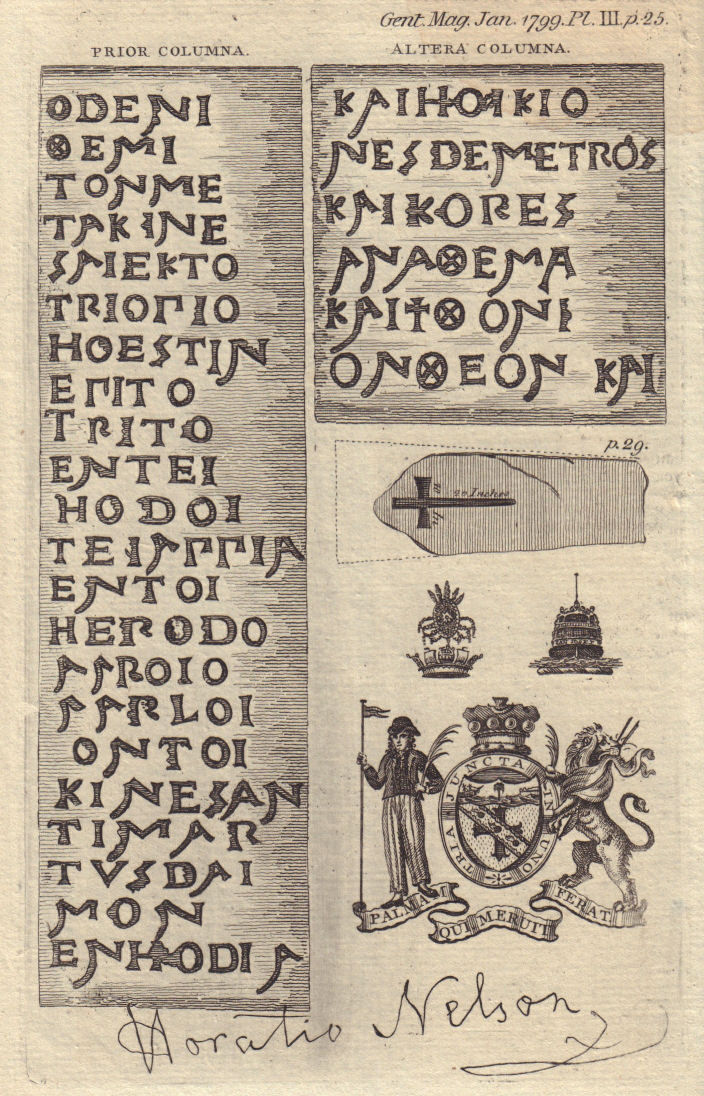 Gent. Mag. Jan. 1799. Pl. III. p. 25.
PRIOR COLUMNA.
ODENI
ΘEMI
TONME
TAKINE
SAIEKTO
TRIOΠIO
HOESTIN
EΠITO
TRITO
ENTEI
HODOI
TEIAΠΠIA
ENTOI
HERODO
AΛROIO
ΛARLOI
ONTOI
KINESAN
TIMAR
TVSDAI
MON
ENHODIA
ALTERA COLUMNA.
KAIHOIKIO
NESDEMETROS
KAIKORES
ANAΘEMA
KAI†ΘONI
ONΘEON KAI
p. 29.
20 Inches
TRIA JUNCTA IN UNO
PALMAM QUI MERUIT FERAT
Horatio Nelson